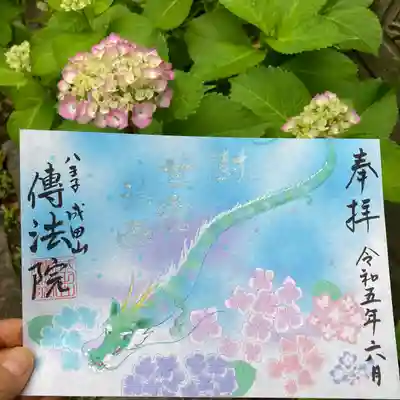 奉拝
令和五年六月
八王子成田山
傳法院